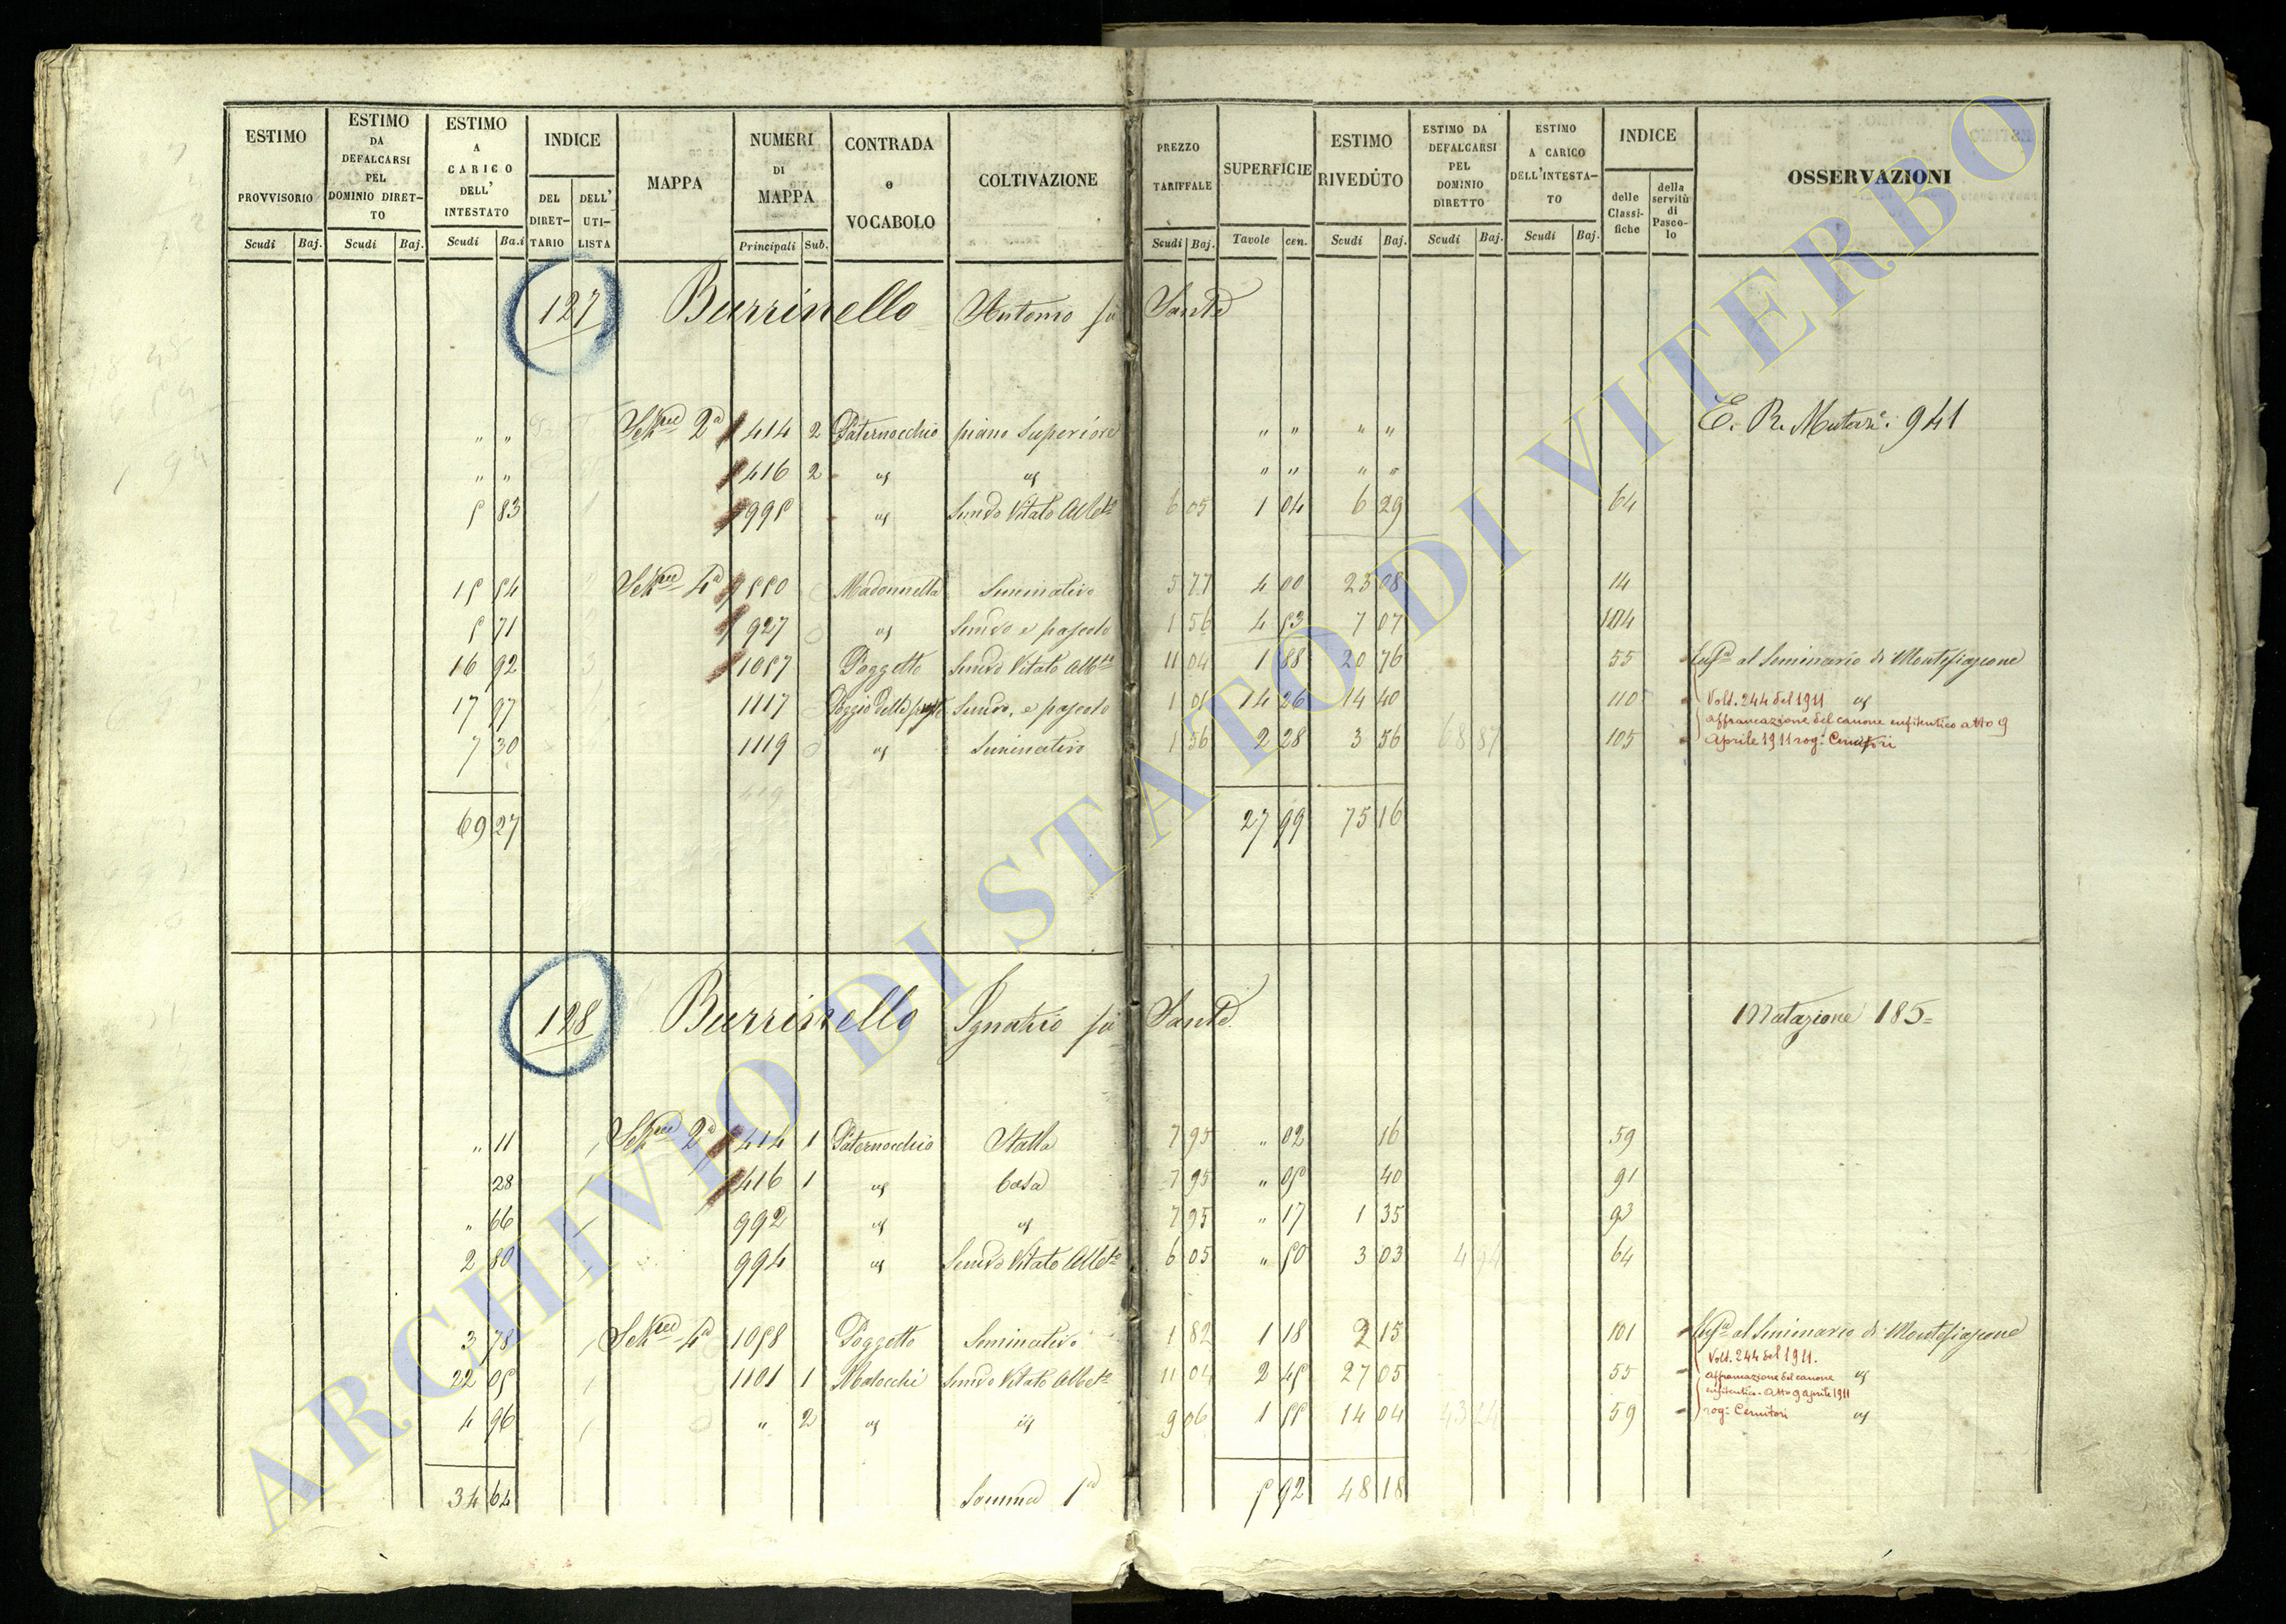 ESTIMO PROVVISORIO Scudi Baj.
ESTIMO DA DEFALCARSI PEL DOMINIO DIRET-TO Scudi Baj.
ESTIMO A CARICO DELL' INTESTATO Scudi Ba.i
INDICE DEL DIRET-TARIO DELL' UTI-LISTA
MAPPA
NUMERI DI MAPPA Principali Sub.
CONTRADA e VOCABOLO
COLTIVAZIONE
PREZZO TARIFFALE Scudi Baj.
SUPERFICIE Tavole cen.
ESTIMO RIVEDUTO Scudi Baj.
ESTIMO DA DEFALCARSI PEL DOMINIO DIRETTO Scudi Baj.
ESTIMO A CARICO DELL'INTESTA-TO Scudi Baj.
INDICE delle Classi-fiche della servitù di Pasco-lo
OSSERVAZIONI
127 Burrinello Antonio fù Sante
" " 2a 414 2 Paternocchio piano Superiore " " " " E. R. Mutaze: 941
" " 416 2 " " " "
5 83 995 Semvo Vitato Albto 6 05 1 04 6 29 64
15 54 4a 550 Madonnella Seminativo 5 77 4 00 23 08 14
5 71 927 Semvo e pascolo 1 56 4 53 7 07 104
16 92 1057 Poggetto Semvo Vitato Albto 11 04 1 88 20 76 55 Enfa al Seminario di Montefiascone
17 97 1117 Semvo, e pascolo 1 01 14 26 14 40 110 Volt. 244 del 1911
7 30 1119 Seminativo 1 56 2 28 3 56 68 87 105 affrancazione del canone enfiteutico atto 9
Aprile 1911 rog:
69 27 27 99 75 16
128 Burrinello Ignazio fù Sante Mutazione 185=
" 11 2a 414 1 Paternocchio Stalla 7 95 " 02 16 59
28 416 1 Casa 7 95 " 05 40 91
" 66 992 7 95 " 17 1 35 93
2 80 994 Semvo Vitato Albto 6 05 " 50 3 03 64
3 78 4a 1058 Poggetto Seminativo 1 82 1 18 2 15 101 Enfa al Seminario di Montefiascone
Volt. 244 del 1911.
22 05 1101 1 Matocchi Semvo Vitato Albto 11 04 2 45 27 05 55 affrancazione del canone
enfiteutico - Atto 9 aprile 1911
4 96 " 2 9 06 1 55 14 04 59 rog:
34 64 Somma 1a 5 92 48 18
ARCHIVIO DI STATO DI VITERBO